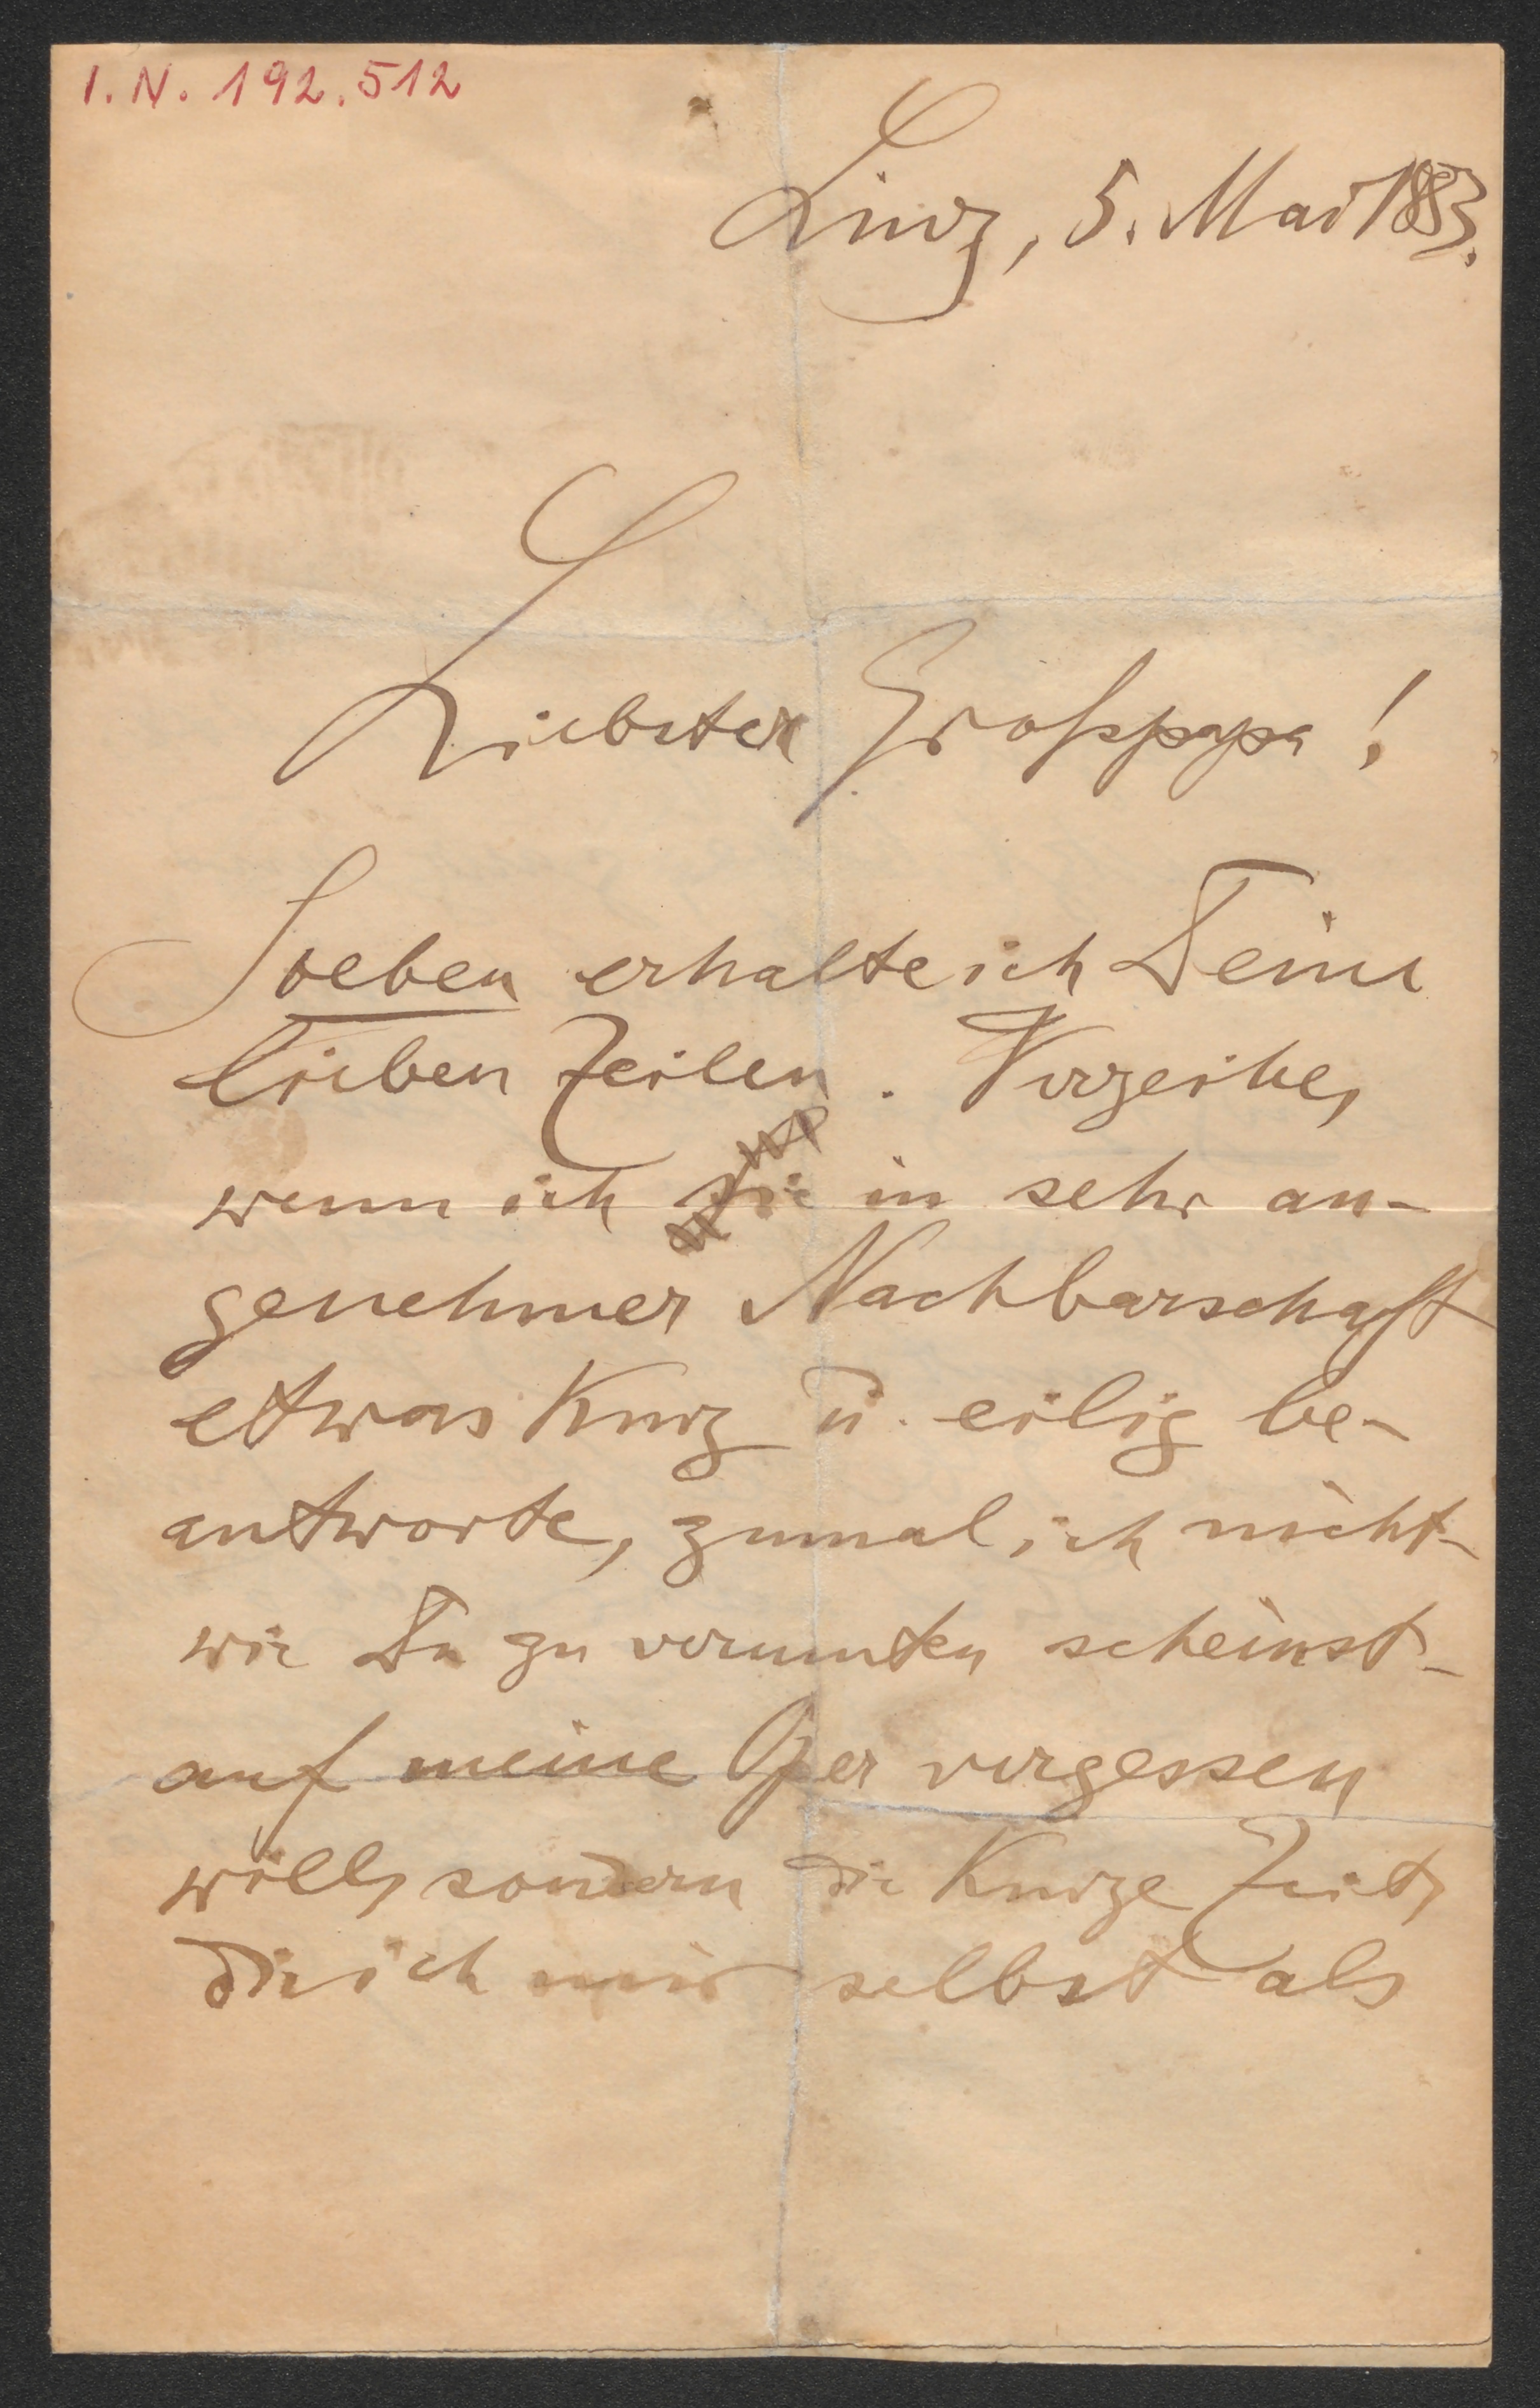 I.N. 192.512
Linz, 5. Mai 1883.
Liebster Großpapa!
Soeben erhalte ich Deine
lieben Zeilen. Verzeihe,
wenn ich sie in sehr an-
genehmer Nachbarschaft
etwas kurz u. eilig be-
antworte, zumal ich nicht -
wie Du zu vermuten scheinst -
auf meine Oper vergessen
will, sondern die kurze Zeit,
die ich mir selbst als